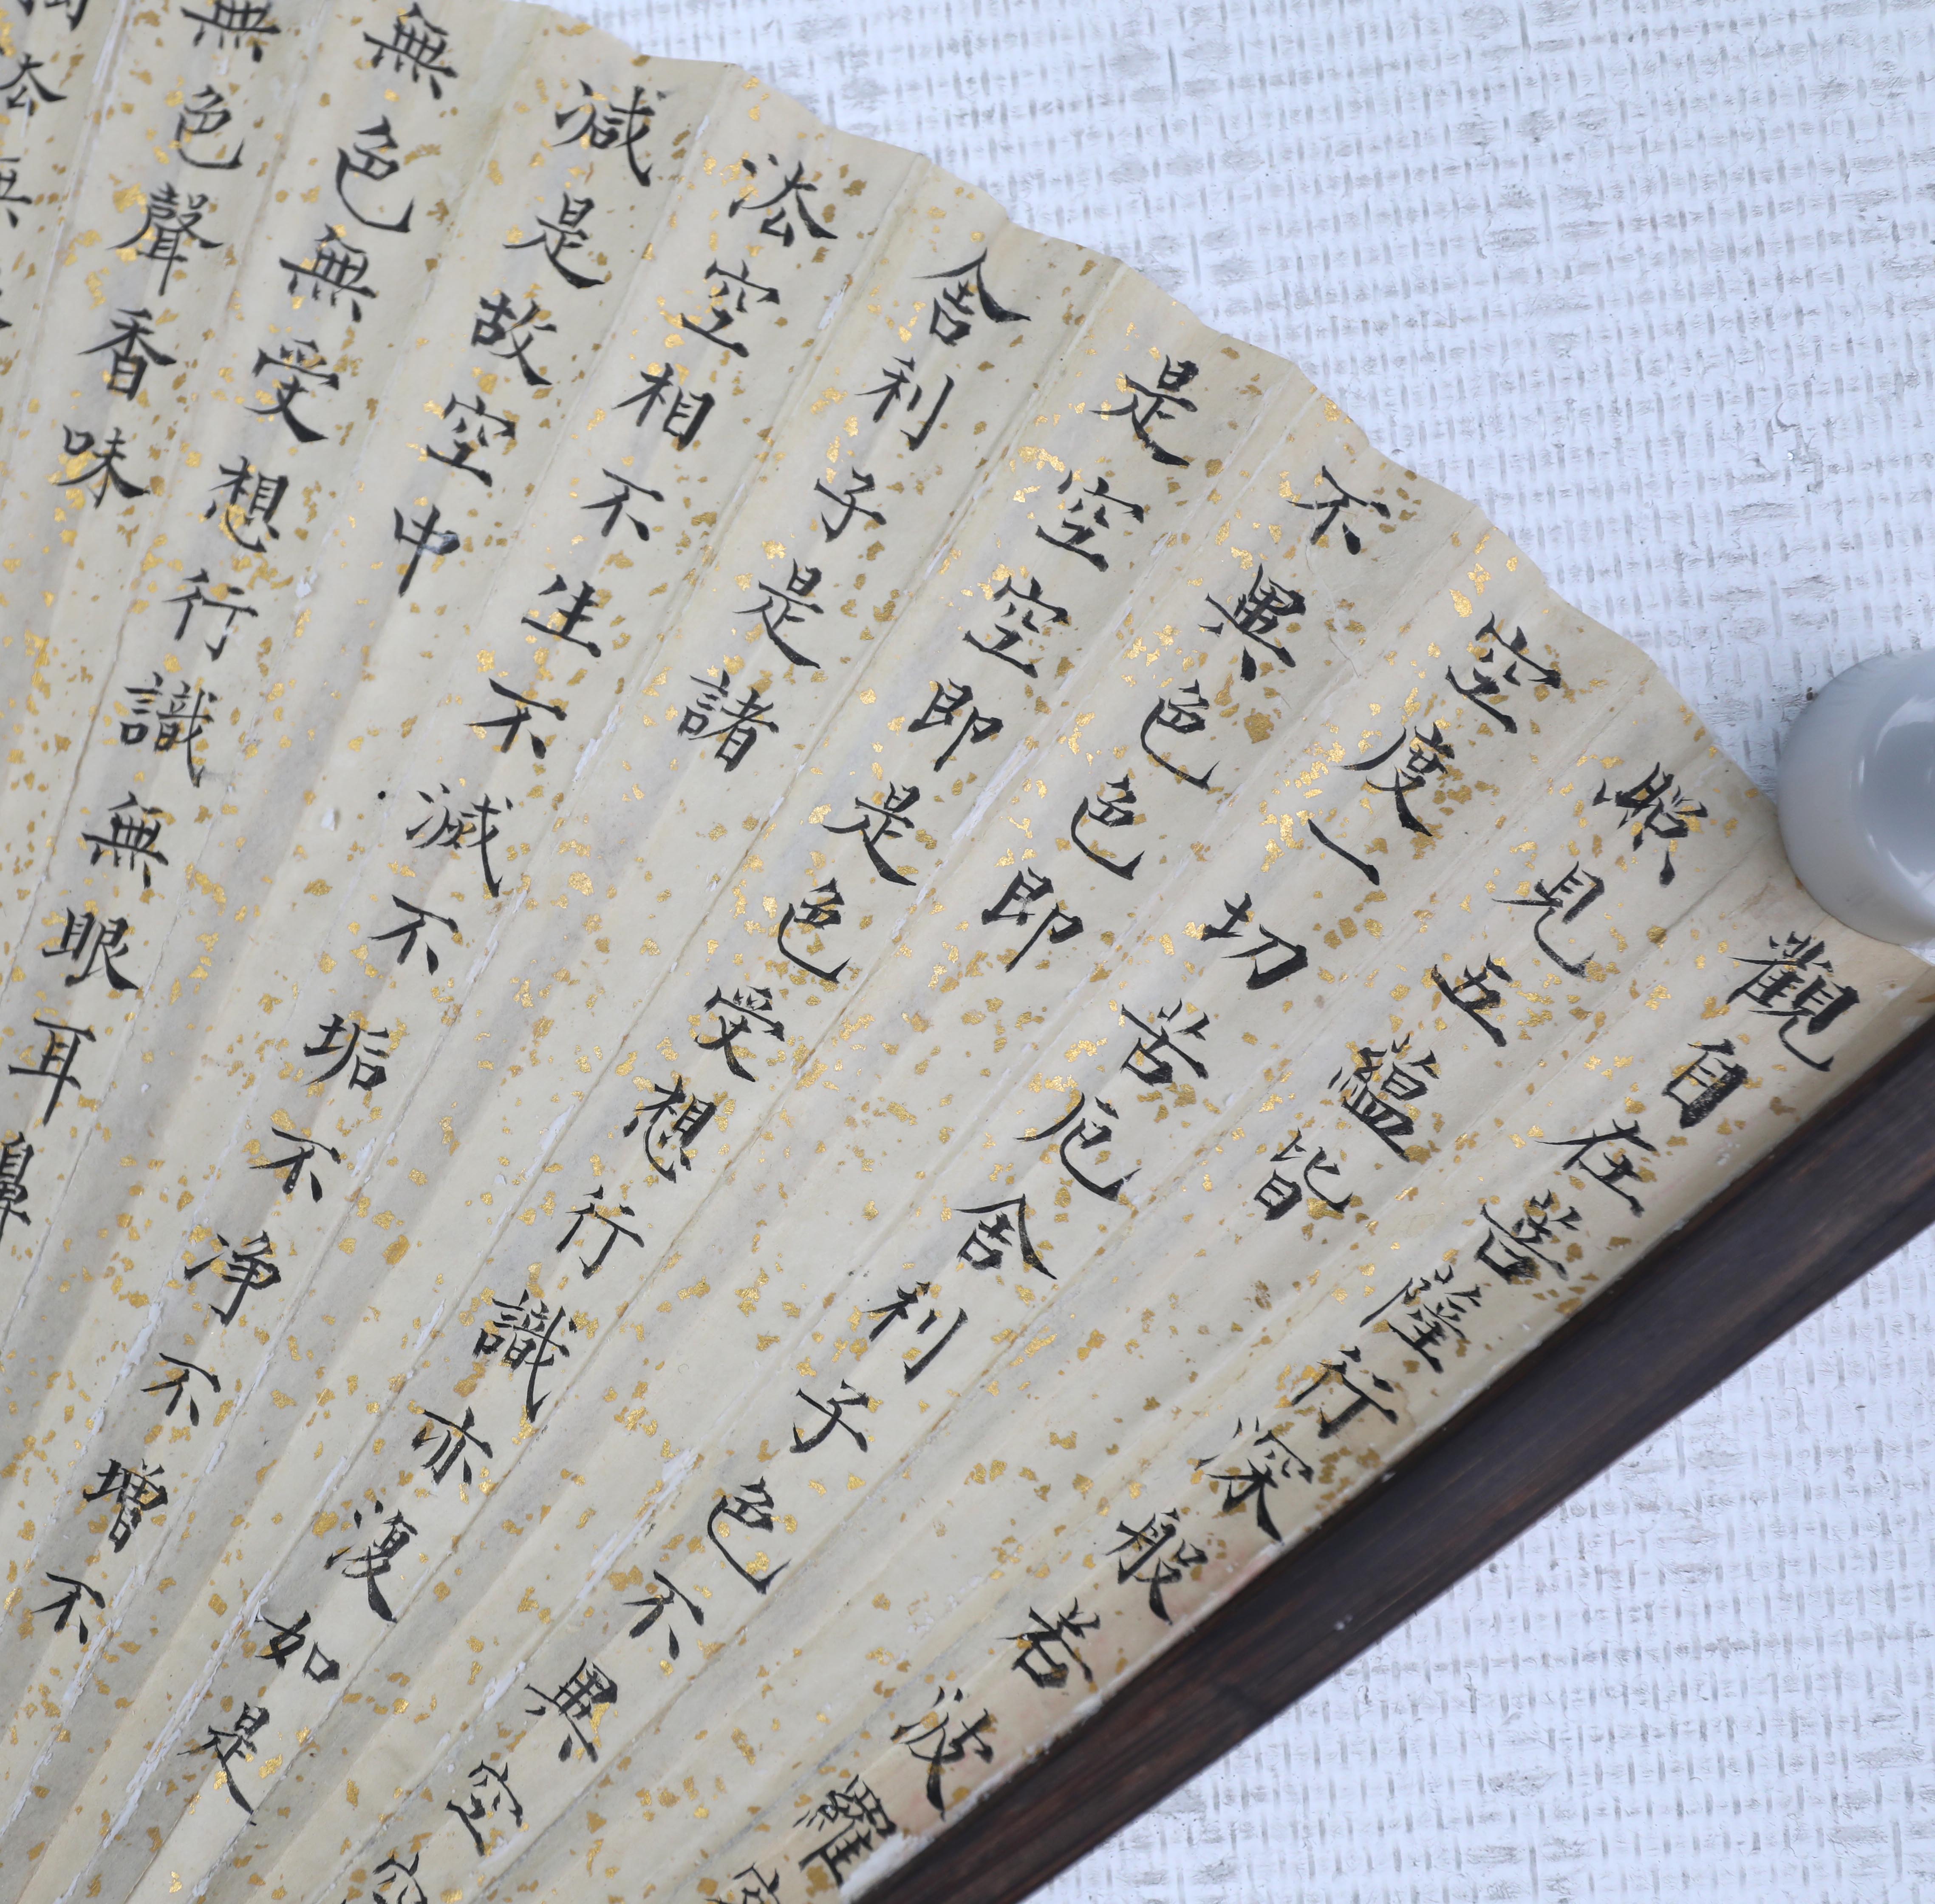 觀自在菩薩行深般若波羅
照見五蘊皆
空度一切苦厄舍利子色不異空空
不異色色即
是空空即是色受想行識亦復如是
舍利子是諸
法空相不生不滅不垢不净不增不
減是故空中
無色無受想行識無眼耳鼻
無色聲香味
法無